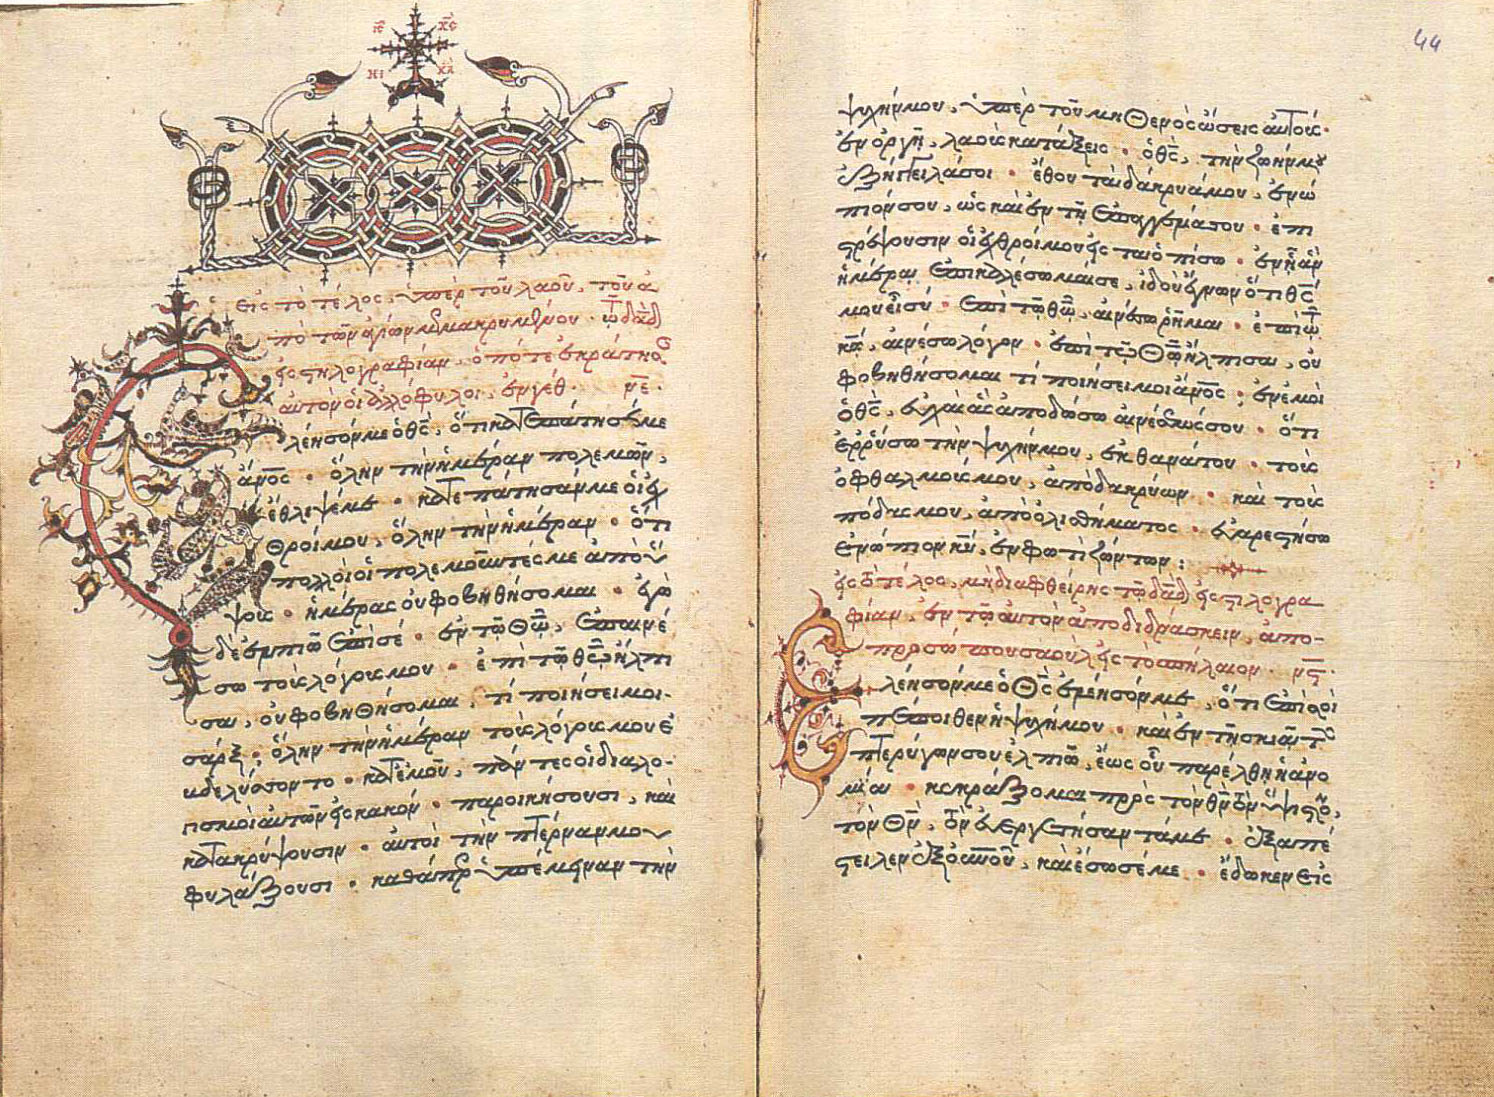 ις χς
νι κα
εἰς τὸ τέλος, ὑπὲρ τοῦ λαοῦ, τοῦ ἀ
πὸ τῶν ἁγίων μεμακρυμμένου · τῷ δαδ
εἰς στηλογραφίαν, ὁπότε ἐκράτησ
αὐτὸν οἱ ἀλλόφυλοι, ἐν γέθ · νε ·
λέησόν με ὁ θς, ὅτι κατεπάτησέ με
ἄνος · ὅλην τὴν ἡμέραν πολεμῶν,
ἔθλιψέ με · κατεπάτησάν με οἱ ἐχ
θροί μου, ὅλην τὴν ἡμέραν · ὅτι
πολλοὶ οἱ πολεμοῦντές με ἀπὸ ὕ
ψους · ἡμέρας οὐ φοβηθήσομαι · ἐγὼ
δὲ ἐλπιῶ ἐπὶ σέ · ἐν τῷ θῷ, ἐπαινέ
σω τοὺς λόγους μου · ἐπὶ τῷ θῷ ἤλπι
σα, οὐ φοβηθήσομαι, τί ποιήσει μοι
σάρξ ; ὅλην τὴν ἡμέραν τοὺς λόγους μου ἐ
βδελύσσοντο · κατ ἐμοῦ, πάντες οἱ διαλο
γισμοὶ αὐτῶν εἰς κακόν · παροικήσουσι, καὶ
κατακρύψουσιν · αὐτοὶ τὴν πτέρναν μου
φυλάξουσι · καθάπερ ὑπέμειναν τὴν
44
ψυχήν μου, ὑπὲρ τοῦ μηθενὸς ὤσεις αὐτούς ·
ἐν ὀργῇ, λαοὺς κατάξεις · ὁ θς, τὴν ζωήν μου
ἐξήγγειλά σοι · ἔθου τὰ δάκρυά μου, ἐνώ
πιόν σου, ὡς καὶ ἐν τῇ ἐπαγγελία σου · ἐπι
στρέψουσιν οἱ ἐχθροί μου εἰς τὰ ὀπίσω · ἐν ᾗ ἂν
ἡμέρᾳ ἐπικαλέσωμαί σε, ἰδοὺ ἔγνων ὅτι θς
μου εἶ σύ · ἐπὶ τῷ θῷ, αἰνέσω ῥῆμα · ἐπὶ τῷ
κω, αἰνέσω λόγον · ἐπὶ τῷ θῷ ἤλπισα, οὐ
φοβηθήσομαι τί ποιήσει μοι ἄνος ; ἐν ἐμοὶ
ὁ θς, εὐχαὶ ἃς ἀποδώσω αἰνέσεώς σου · ὅτι
ἐρρύσω τὴν ψυχήν μου, ἐκ θανάτου · τοὺς
ὀφθαλμούς μου, ἀπὸ δακρύων · καὶ τοὺς
πόδας μου, ἀπὸ ὀλισθήματος · εὐαρεστήσω
ἐνώπιον κυ, ἐν φωτὶ ζώντων :
εἰς τὸ τέλος, μὴ διαφθείρης τῷ δαδ εἰς στηλογρα
φίαν, ἐν τῷ αὐτὸν ἀποδιδράσκειν, ἀπὸ
προσώπου σαοὺλ εἰς τὸ σπήλαιον · νς ·
Ἐλέησόν με ὁ θς ἐλέησόν με, ὅτι ἐπὶ σοὶ
πέποιθεν ἡ ψυχή μου · καὶ ἐν τῇ σκιᾷ τῶν
πτερύγων σου ἐλπιῶ, ἕως οὗ παρέλθῃ ἡ ἀνο
μία · κεκράξομαι πρὸς τὸν θν τὸν ὕψιστον,
τὸν θν, τὸν εὐεργετήσαντά με · ἐξαπέ
στειλεν ἐξ οὐνοῦ, καὶ ἔσωσέ με · ἔδωκεν εἰς